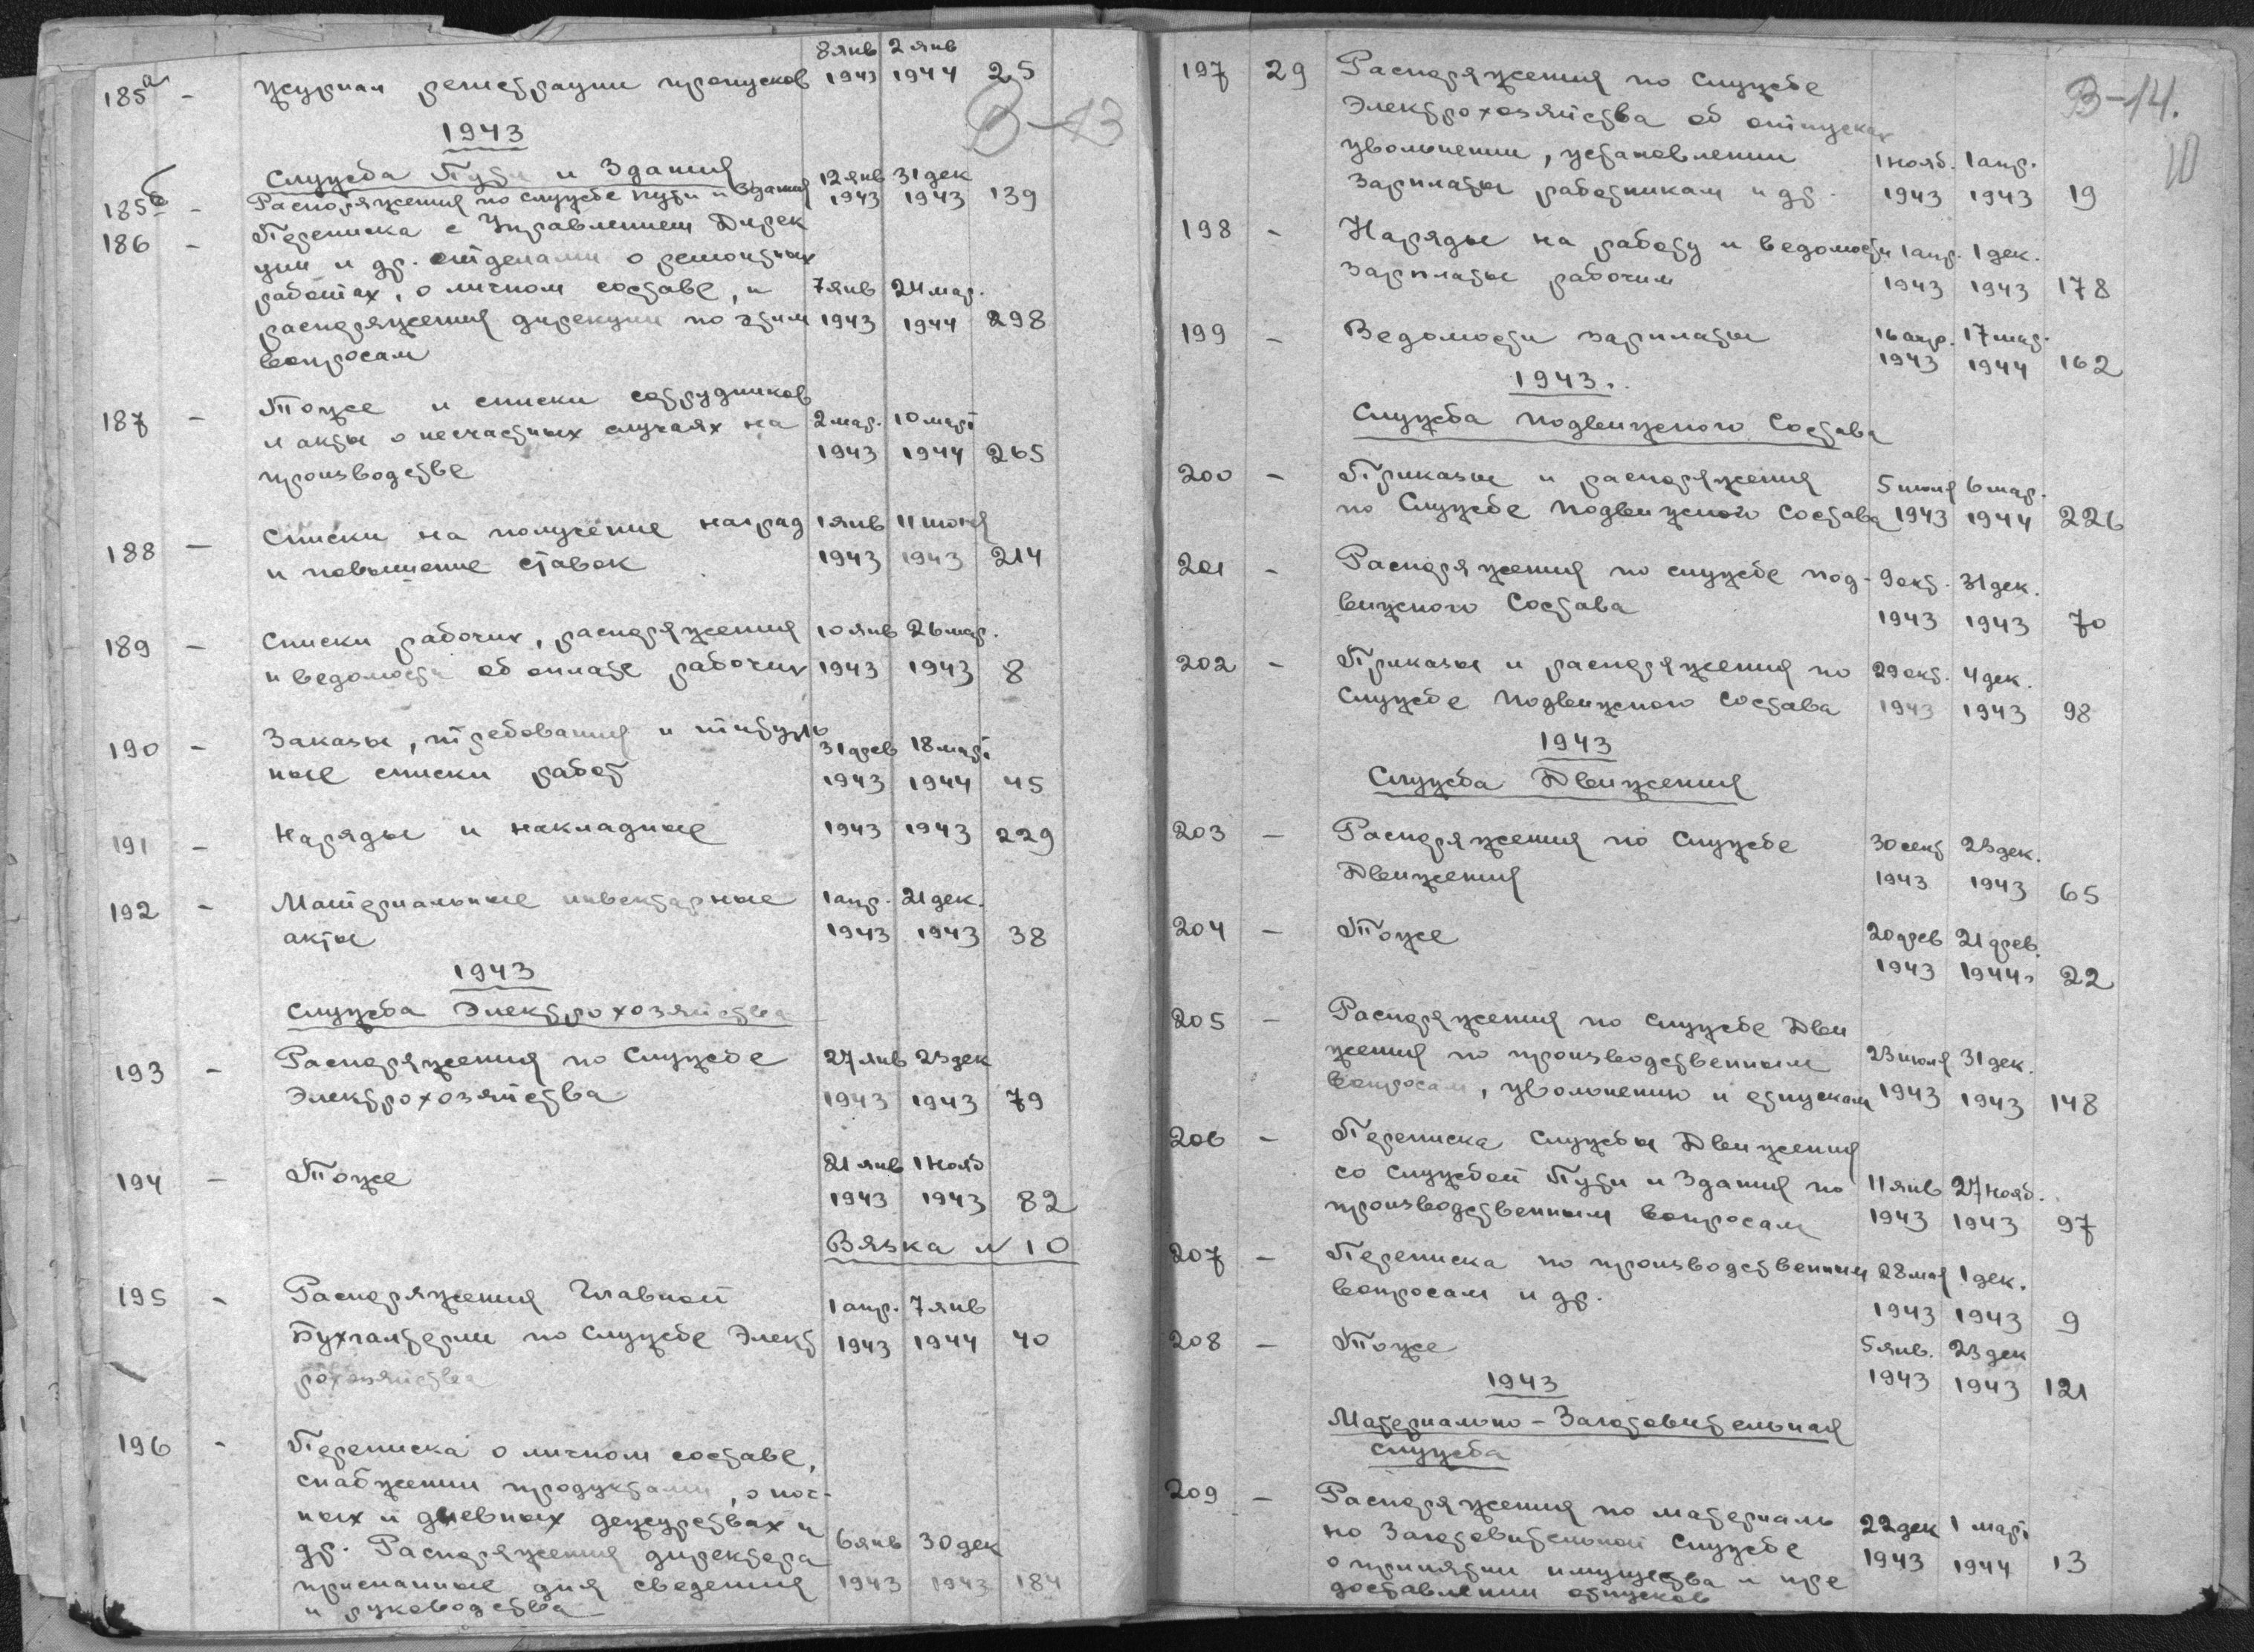 8 янв 2 янв
185а - Журнал регистрации пропусков 1943 1944 25
В-13
1943
Служба Пути и Здания
12 янв 31 дек
185б - Распоряжения по службе пути и здания 1943 1943 139
186 - Переписка с Управлением Дирек
ции и др. отделами о ремонтных
работах, о личном составе, и 7 янв 24 мар.
распоряжения дирекции по этим 1943 1944 298
вопросам
187 - Тоже и списки сотрудников
и акты о несчастных случаях на 2 мар. 10 март
производстве 1943 1944 265
188 - Списки на получение наград 1 янв 11 июня
и повышение ставок 1943 1943 214
189 - Списки рабочих, распоряжения 10 янв 26 мар.
и ведомости об оплате рабочих 1943 1943 8
190 - Заказы, требования и титуль
ные списки работ 31 фев 18 март
1943 1944 45
191 - Наряды и накладные 1943 1943 229
192 - Материальные инвентарные 1 апр. 21 дек.
акты 1943 1943 38
1943
Служба Электрохозяйства
193 - Распоряжения по Службе 27 янв 23 дек
Электрохозяйства 1943 1943 79
194 - Тоже 21 янв 1 нояб
1943 1943 82
Вязка N 10
195 - Распоряжения Главной 1 апр. 7 янв
Бухгалтерии по Службе Элект 1943 1944 40
рохозяйства
196 - Переписка о личном составе,
снабжении продуктами, о ноч-
ных и дневных дежурствах и
др. Распоряжения директора 6 янв 30 дек
присланные для сведения 1943 1943 184
и руководства
197 29 Распоряжения по Службе
В-14.
10
Электрохозяйства об отпусках
увольнении, установлении 1 нояб. 1 апр.
зарплаты работникам и др. 1943 1943 19
198 - Наряды на работу и ведомости 1 апр. 1 дек.
зарплаты рабочим 1943 1943 178
199 - Ведомости зарплаты 16 апр. 17 мар.
1943 1944 162
1943.
Служба Подвижного Состава
200 - Приказы и распоряжения 5 июня 6 мар.
по Службе Подвижного Состава 1943 1944 226
201 - Распоряжения по службе под- 9 окт. 31 дек.
вижного Состава 1943 1943 70
202 - Приказы и распоряжения по 29 окт. 4 дек.
Службе Подвижного Состава 1943 1943 98
1943
Служба Движения
203 - Распоряжения по Службе 30 сент 23 дек.
Движения 1943 1943 65
204 - Тоже 20 фев 21 фев.
1943 1944 22
205 - Распоряжения по Службе Дви
жения по производственным 23 июля 31 дек.
вопросам, увольнению и отпускам 1943 1943 148
206 - Переписка Службы Движения
со Службой Пути и Здания по 11 янв 27 нояб.
производственным вопросам 1943 1943 97
207 - Переписка по производственным 28 мая 1 дек.
вопросам и др. 1943 1943 9
208 - Тоже 5 янв. 23 дек
1943 1943 121
1943
Материально-Заготовительная
служба
209 - Распоряжения по материаль
но Заготовительной Службе 22 дек 1 март
о принятии имущества и пре 1943 1944 13
доставлении отпусков